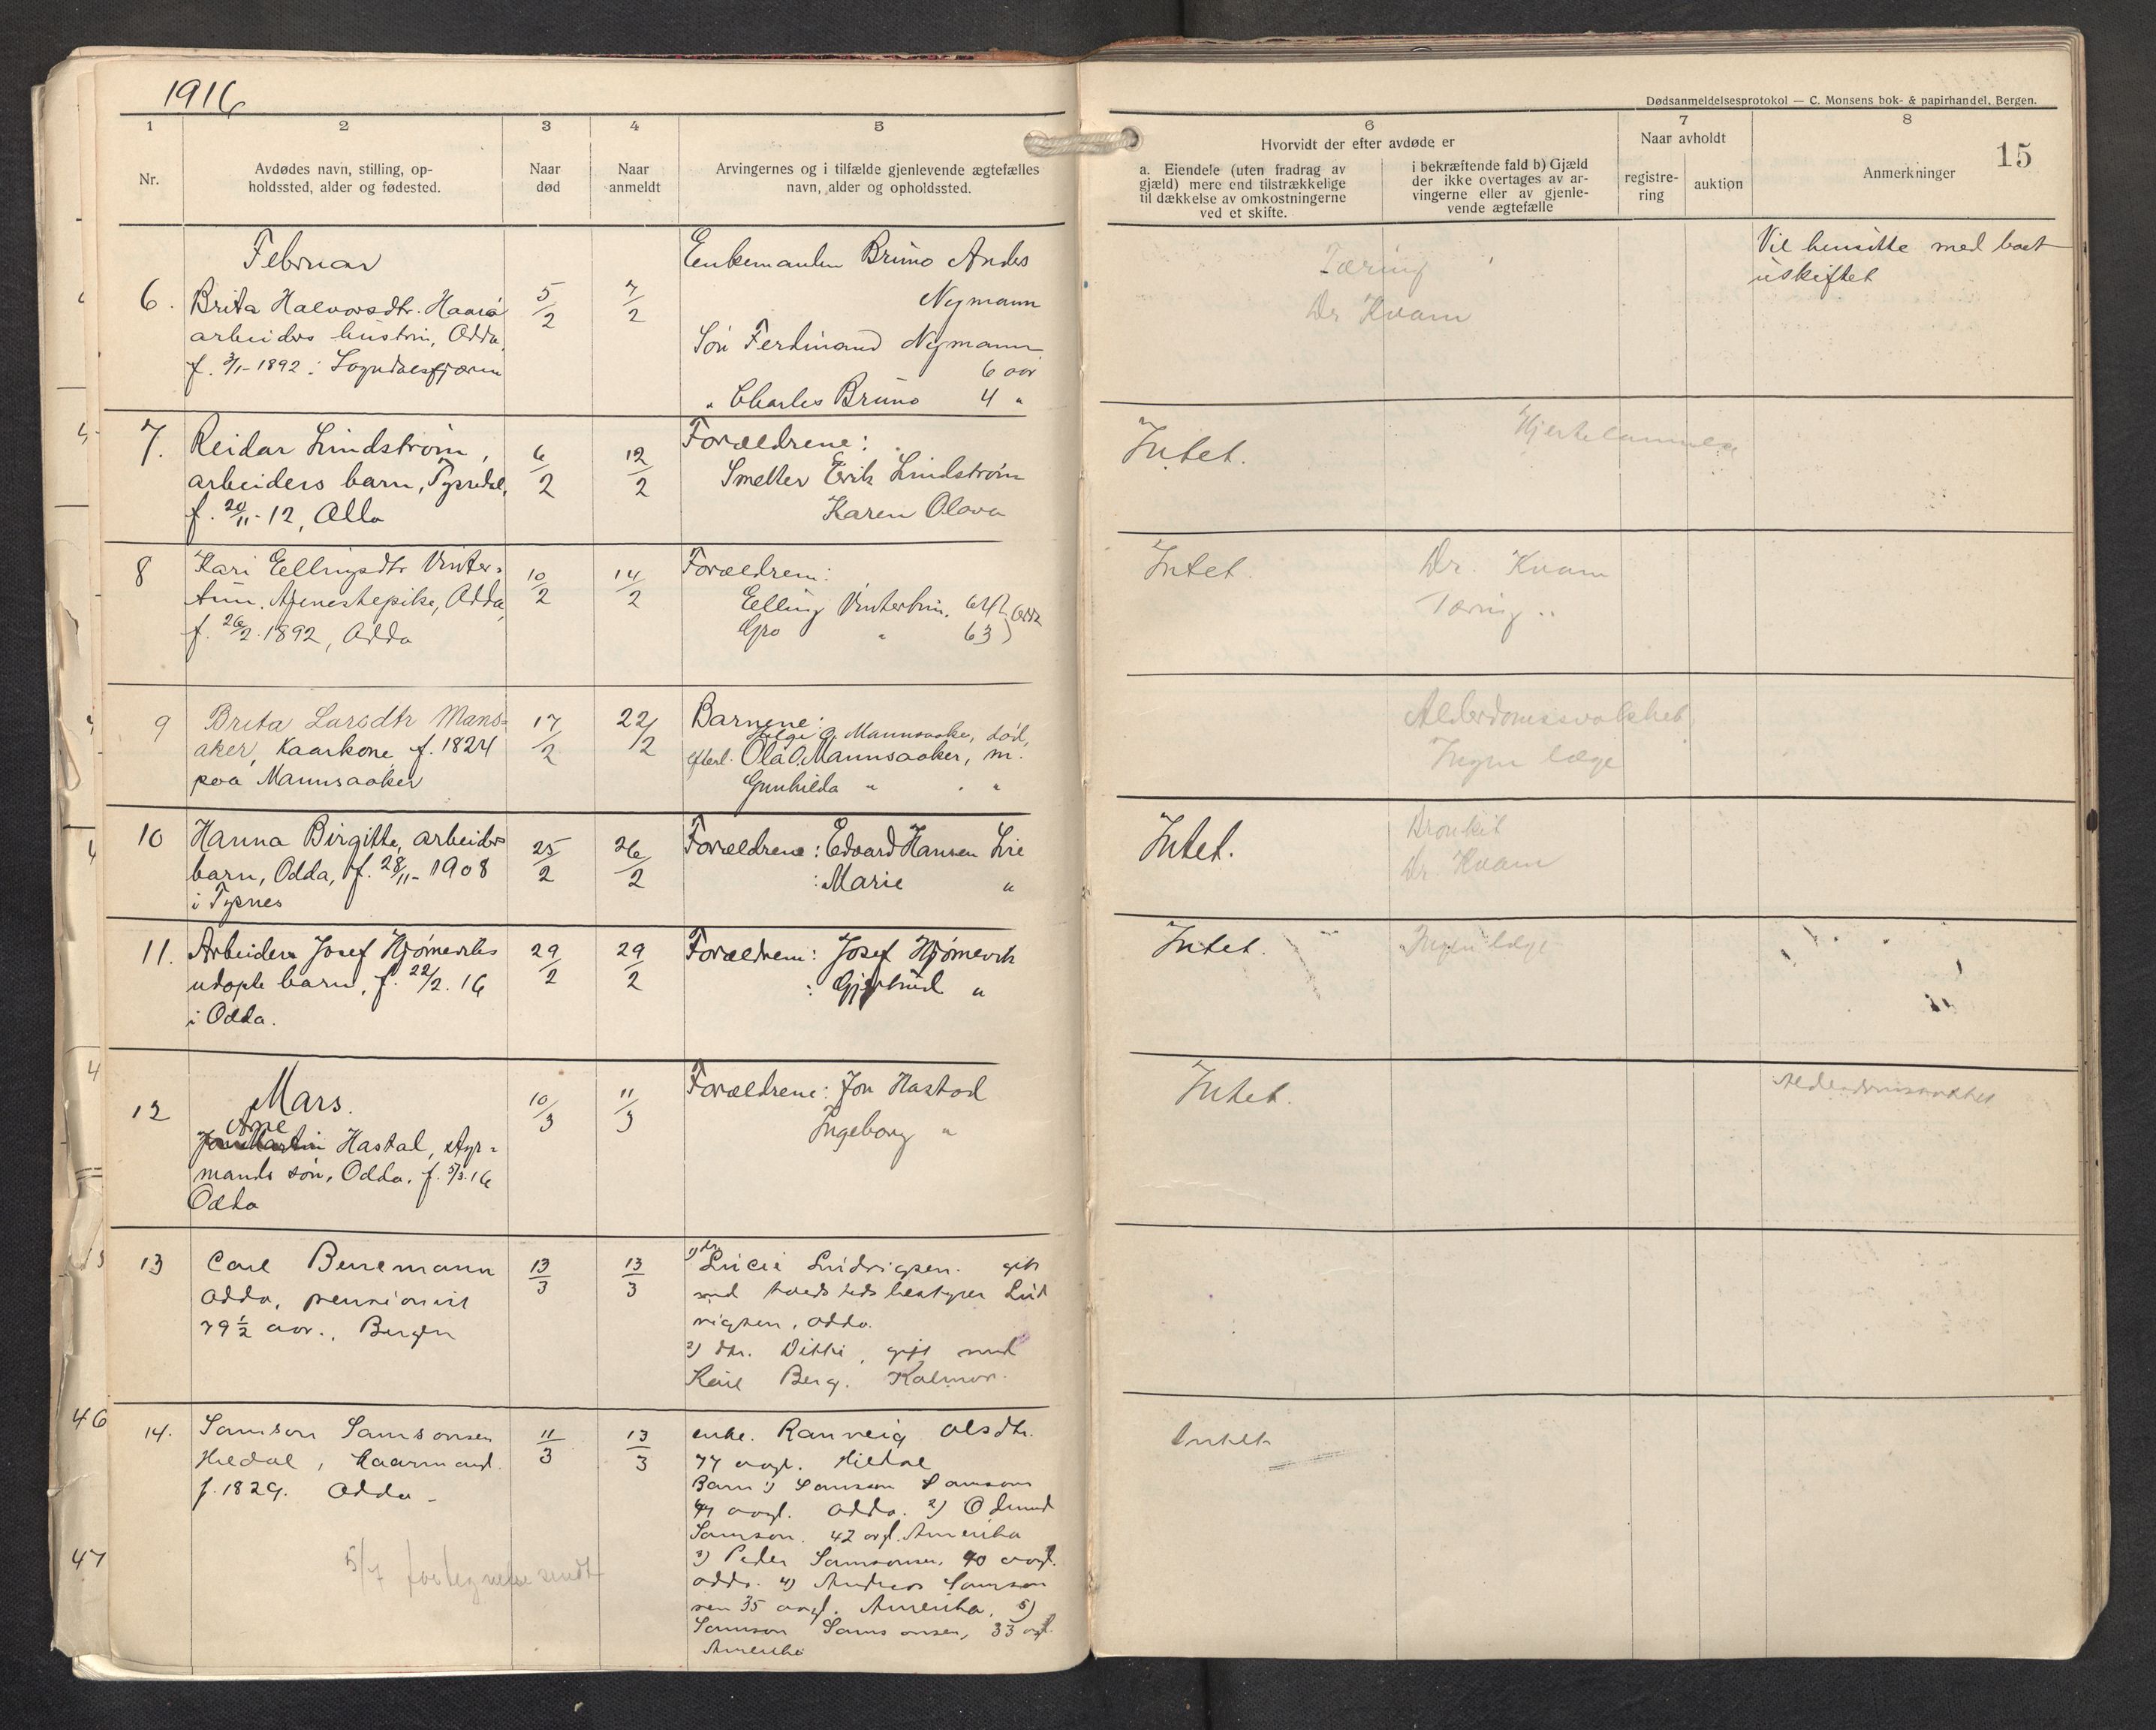 1916
Dødsanmeldelsesprotokol — C. Monsens bok- & papirhandel, Bergen.
15
1 2 3 4 5 6 7 8
Nr.
Avdødes navn, stilling, op-
holdssted, alder og fødested.
Naar
død
Naar
anmeldt
Arvingernes og i tilfælde gjenlevende ægtefælles
navn, alder og opholdssted.
Hvorvidt der efter avdøde er
a. Eiendele (uten fradrag av
gjæld) mere end tilstrækkelige
til dækkelse av omkostningerne
ved et skifte.
i bekræftende fald b) Gjæld
der ikke overtages av ar-
vingerne eller av gjenle-
vende ægtefælle
Naar avholdt
registre-
ring
auktion
Anmerkninger
Februar
6.
Brita Halvorsdtr.
arbeiders hustru, Odda,
f. 3/1-1892 i Sogndalsfjæren
5/2
7/2
Enkemanden Bruno Andrs
Nymann
Søn Ferdinand Nymann
6 aar
" Charles Bruno 4 "
Tæring
Dr Kvam
Vil hensitte med boet
uskiftet
7.
Reidar Lindstrøm,
arbeiders barn, Tyssedal,
f. 20/11-12, Odda
6/2
12/2
Forældrene:
Smelter Erik Lindstrøm
Karen Olava
Intet.
Hjertelammelse
8
Kari Ellingsdtr Vinter-
tun, tjenestepike, Odda,
f. 26/2 1892, Odda
10/2
14/2
Forældrene:
Elling Vintertun. 64 } Odda
Gro " 63
Intet.
Dr. Kvam
Tæring
9
Brita Larsdtr Mans-
aker, Kaarkone, f. 1824
paa Mannsaaker
17/2
22/2
Barnene:
Helge O. Mannsaaker, død,
efterl. Ola O. Mannsaaker, m.
Gunhilda " "
Alderdomssvakhet
Ingen læge
10
Hanna Birgitte, arbeiders
barn, Odda, f. 28/11-1908
i Tysnes
25/2
26/2
Forældrene: Edvard Hansen Lie
: Marie "
Intet.
Bronkit
Dr. Kvam
11.
Arbeider Josef Hjørneviks
udøpte barn, f. 22/2. 16
i Odda.
29/2
29/2
Forældrene: Josef Hjørnevik
: Gjertrud "
Intet.
Ingen læge
Mars.
12
Arne
Hastad, styr-
mands søn, Odda, f. 5/3.16
Odda
10/3
11/3
Forældrene: Jon Hastad
Ingeborg "
Intet.
Alderdomssvakhet
13
Carl Bennemann
Odda, pensionist
79 1/2 aar., Bergen
13/3
13/3
1) dtr Lucie Ludvigsen. gift
med Lud
vigsen, Odda.
2) dtr. Ditti, gift med
Karl Berg. Kalmar.
14.
Samson Samsonsen
Hildal, Kaarmand.
f. 1829. Odda
11/3
13/3
enke. Ranveig Olsdtr.
77 aargl. Hildal
Barn 1) Samson Samsons
aargl. Odda. 2) Odmund
Samson. 42 argl. Amerika
3) Peder Samsonsen, 40 aargl.
Odda. 4) Andreas Samson
sen 35 aargl. Amerika, 5)
Samson Samsonsen, 33 argl.
Amerika
Intet
5/7 fortegnelse sendt
46
47